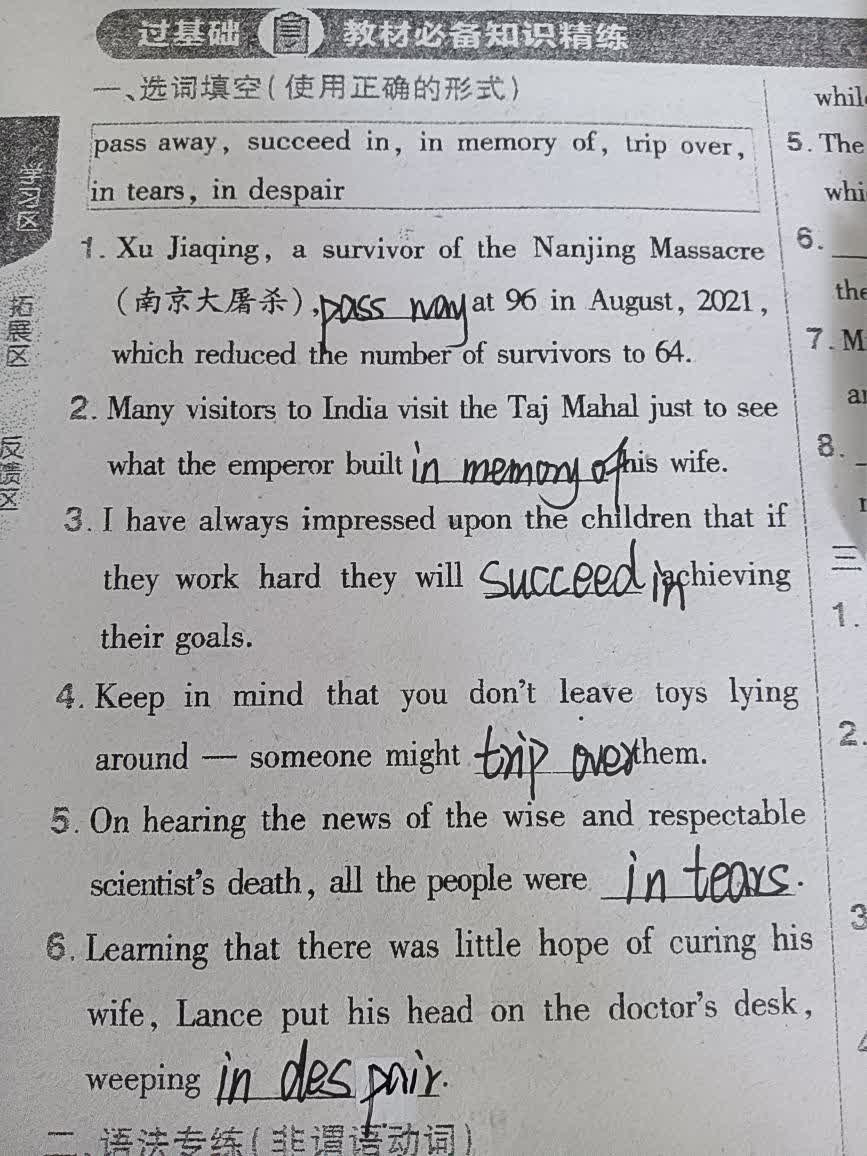 过基础 教材必备知识精练
一、选词填空(使用正确的形式)
pass away, succeed in, in memory of, trip over,
in tears, in despair
1. Xu Jiaqing, a survivor of the Nanjing Massacre
(南京大屠杀), pass way at 96 in August, 2021,
which reduced the number of survivors to 64.
2. Many visitors to India visit the Taj Mahal just to see
what the emperor built in memory of his wife.
3. I have always impressed upon the children that if
they work hard they will succeed in achieving
their goals.
4. Keep in mind that you don't leave toys lying
around — someone might trip over them.
5. On hearing the news of the wise and respectable
scientist's death, all the people were in tears.
6. Learning that there was little hope of curing his
wife, Lance put his head on the doctor's desk,
weeping in despair.
二、语法专练(非谓语动词)
学习区
拓展区
反馈区
5. The
whi
6.
the
7. M
8.
三
1.
2.
3